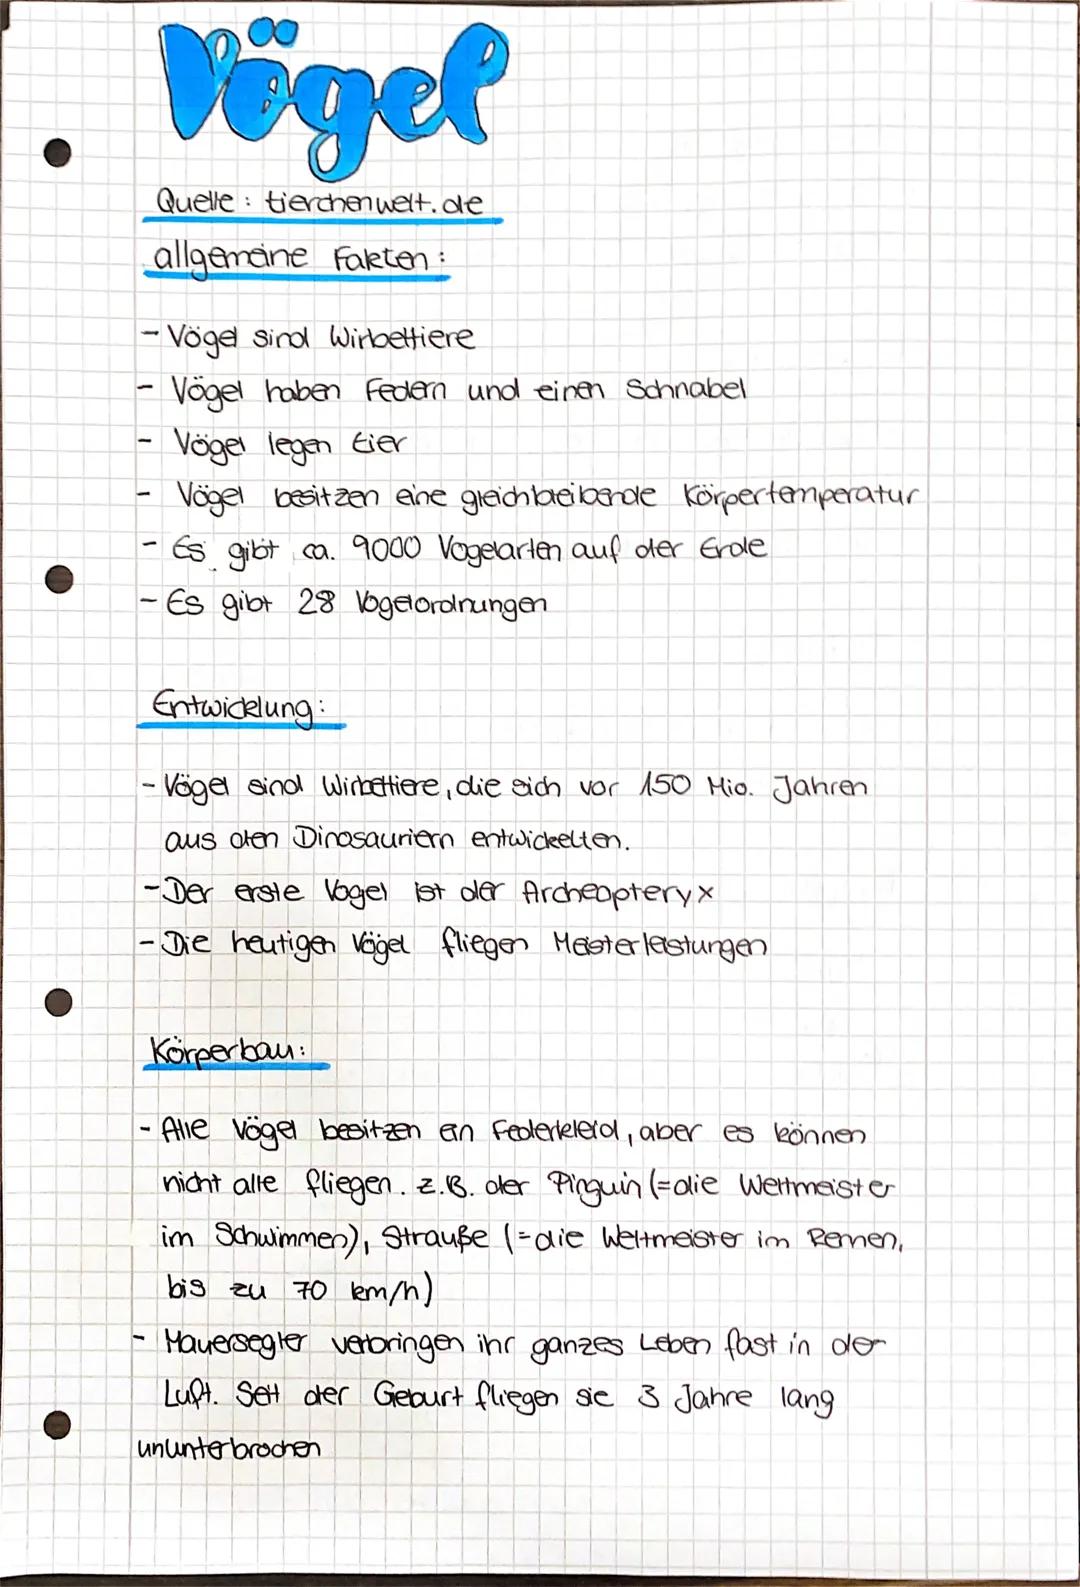 Vögel
Quelle: tierchenwelt.de
allgemeine Fakten:
- Vögel sind Wirbeltiere
- Vögel haben Federn und einen Schnabel
- Vögel legen Eier
- Vögel besitzen eine gleichbleibende Körpertemperatur
- Es gibt ca. 9000 Vogelarten auf der Erde
- Es gibt 28 Vogelordnungen
Entwicklung:
- Vögel sind Wirbeltiere, die sich vor 150 Mio. Jahren
aus den Dinosauriern entwickelten.
- Der erste Vogel ist der Archeopteryx
- Die heutigen Vögel fliegen Meisterleistungen
Körperbau:
- Alle Vögel besitzen ein Federkleid, aber es können
nicht alle fliegen. z.B. der Pinguin (=die Weltmeister
im Schwimmen), Strauße (=die Weltmeister im Rennen,
bis zu 70 km/h)
- Mauersegler verbringen ihr ganzes Leben fast in der
Luft. Seit der Geburt fliegen sie 3 Jahre lang
ununterbrochen